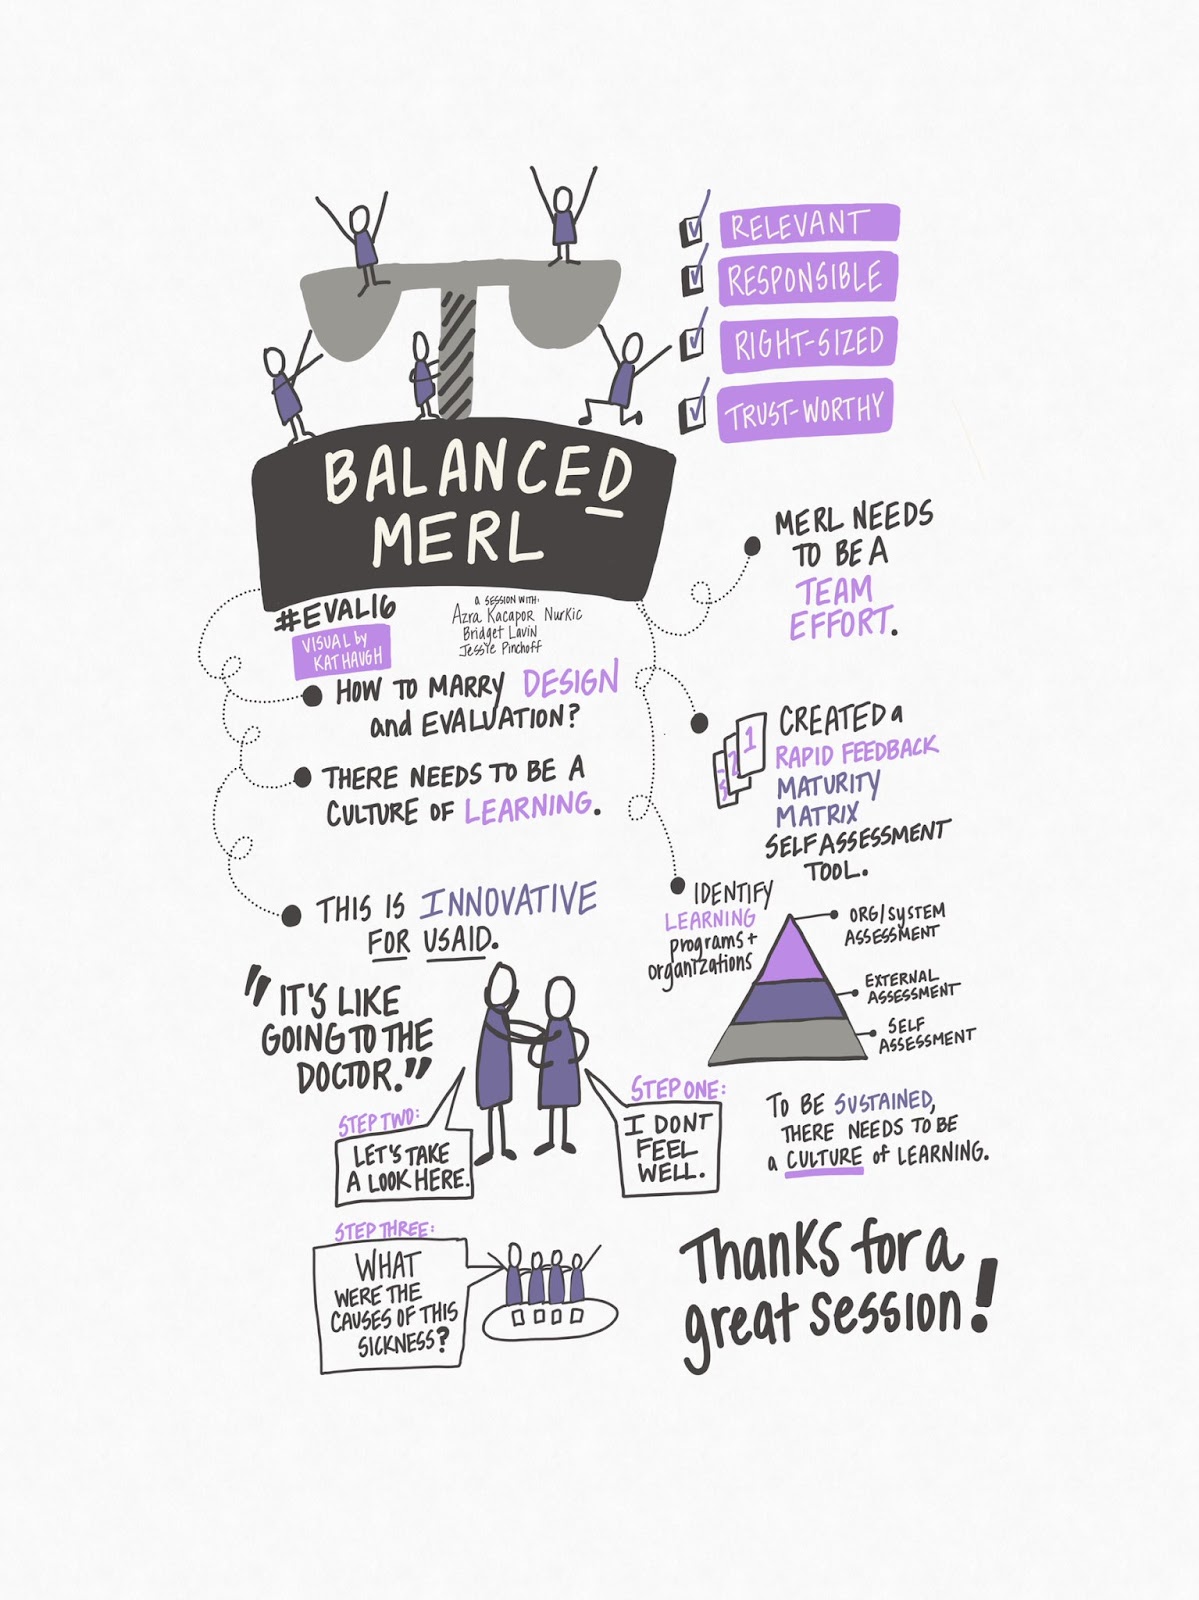 RELEVANT
RESPONSIBLE
RIGHT-SIZED
TRUST-WORTHY
BALANCED
MERL
#EVAL16
VISUAL by
KAT HAUGH
A SESSION WITH:
Azra Kacapor Nurkic
Bridget Lavin
Jessie Pinchoff
HOW TO MARRY DESIGN
and EVALUATION?
THERE NEEDS TO BE A
CULTURE OF LEARNING.
THIS IS INNOVATIVE
FOR USAID.
"IT'S LIKE
GOING TO THE
DOCTOR."
STEP ONE:
I DONT
FEEL
WELL.
STEP TWO:
LET'S TAKE
A LOOK HERE.
STEP THREE:
WHAT
WERE THE
CAUSES OF THIS
SICKNESS?
MERL NEEDS
TO BE A
TEAM
EFFORT.
1
2
CREATED a
RAPID FEEDBACK
MATURITY
MATRIX
SELF ASSESSMENT
TOOL.
IDENTIFY
LEARNING
programs +
organizations
ORG/SYSTEM
ASSESSMENT
EXTERNAL
ASSESSMENT
SELF
ASSESSMENT
TO BE SUSTAINED,
THERE NEEDS TO BE
a CULTURE of LEARNING.
Thanks for a
great session!